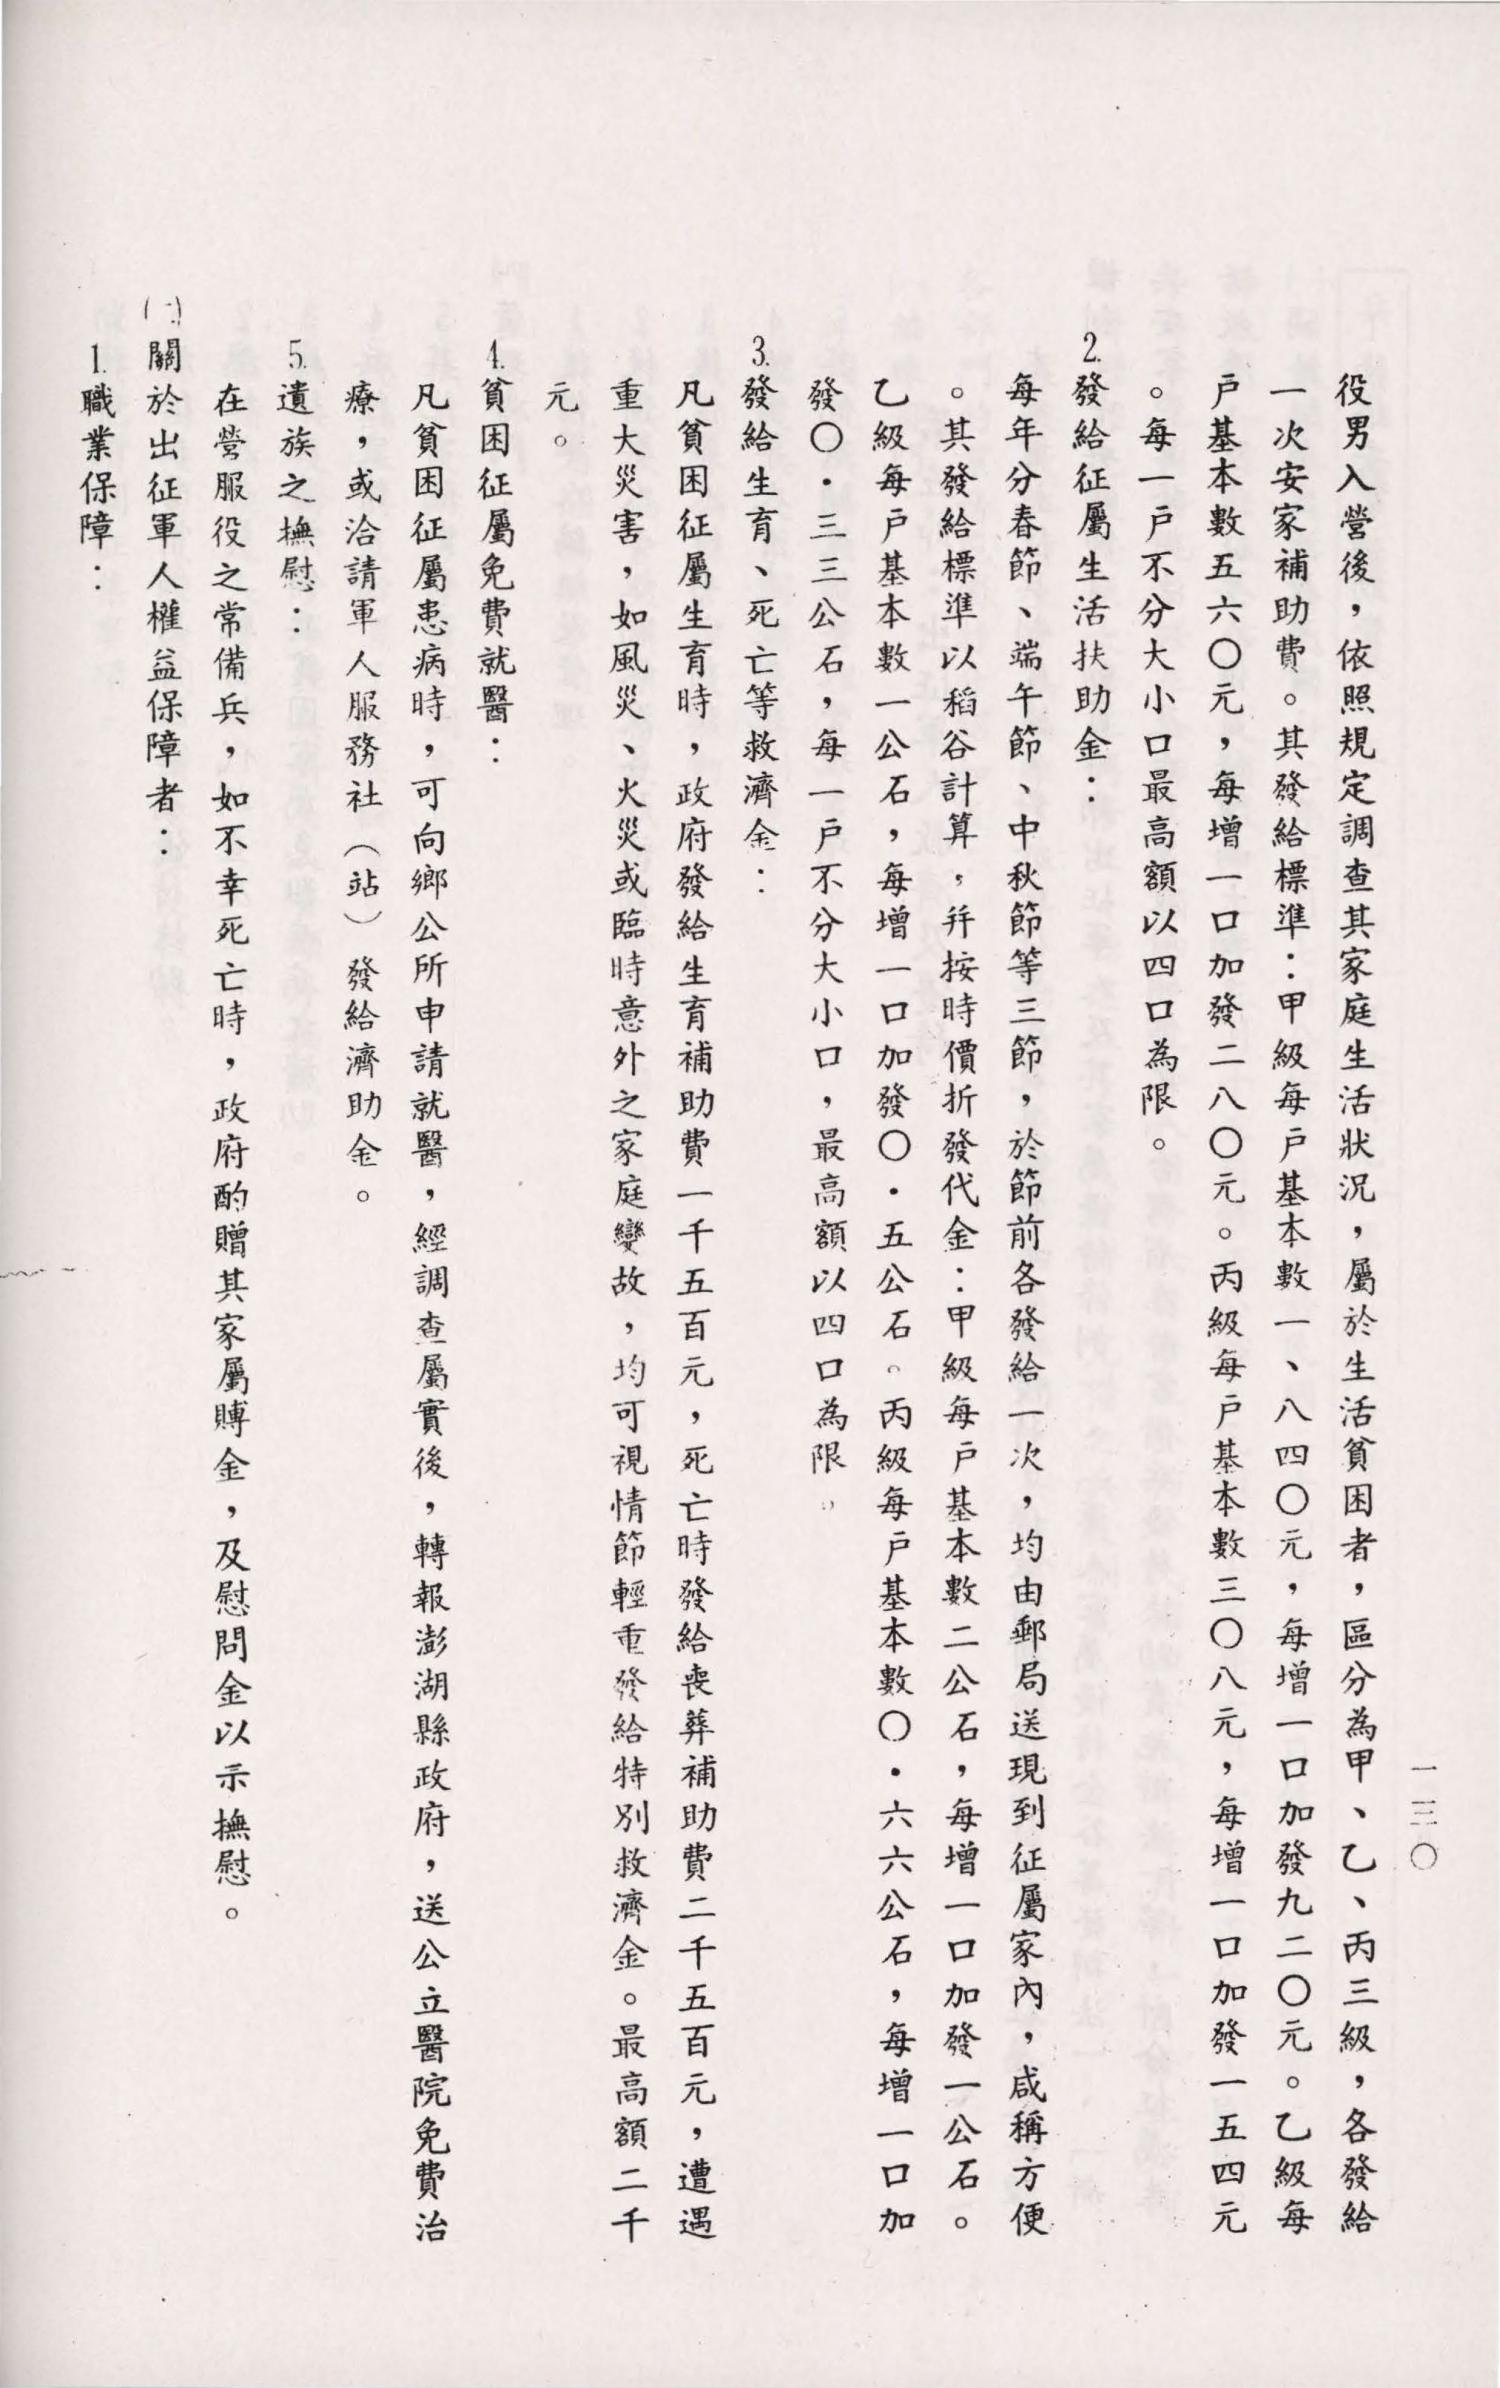 一三〇
役男入營後，依照規定調查其家庭生活狀況，屬於生活貧困者，區分為甲、乙、丙三級，各發給
一次安家補助費。其發給標準：甲級每戶基本數一、八四〇元，每增一口加發九二〇元。乙級每
戶基本數五六〇元，每增一口加發二八〇元。丙級每戶基本數三〇八元，每增一口加發一五四元
。每一戶不分大小口最高額以四口為限。
2.發給征屬生活扶助金：
每年分春節、端午節、中秋節等三節，於節前各發給一次，均由郵局送現到征屬家內，咸稱方便
。其發給標準以稻谷計算，并按時價折發代金：甲級每戶基本數二公石，每增一口加發一公石。
乙級每戶基本數一公石，每增一口加發〇．五公石。丙級每戶基本數〇．六六公石，每增一口加
發〇．三三公石，每一戶不分大小口，最高額以四口為限。
3.發給生育、死亡等救濟金：
凡貧困征屬生育時，政府發給生育補助費一千五百元，死亡時發給喪葬補助費二千五百元，遭遇
重大災害，如風災、火災或臨時意外之家庭變故，均可視情節輕重發給特別救濟金。最高額二千
元。
4.貧困征屬免費就醫：
凡貧困征屬患病時，可向鄉公所申請就醫，經調查屬實後，轉報澎湖縣政府，送公立醫院免費治
療，或洽請軍人服務社（站）發給濟助金。
5.遺族之撫慰：
在營服役之常備兵，如不幸死亡時，政府酌贈其家屬賻金，及慰問金以示撫慰。
關於出征軍人權益保障者：
1.職業保障：